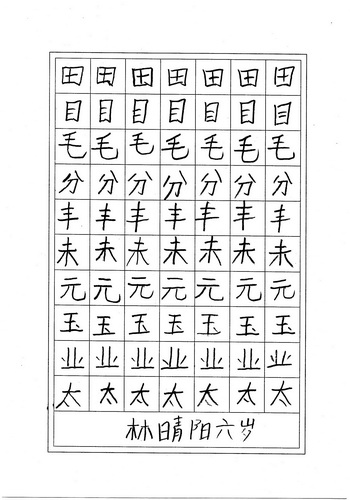 田田田田田田田
目目目目目目目
毛毛毛毛毛毛毛
分分分分分分分
丰丰丰丰丰丰丰
未未未未未未未
元元元元元元元
玉玉玉玉玉玉玉
业业业业业业业
太太太太太太太
林晴阳六岁